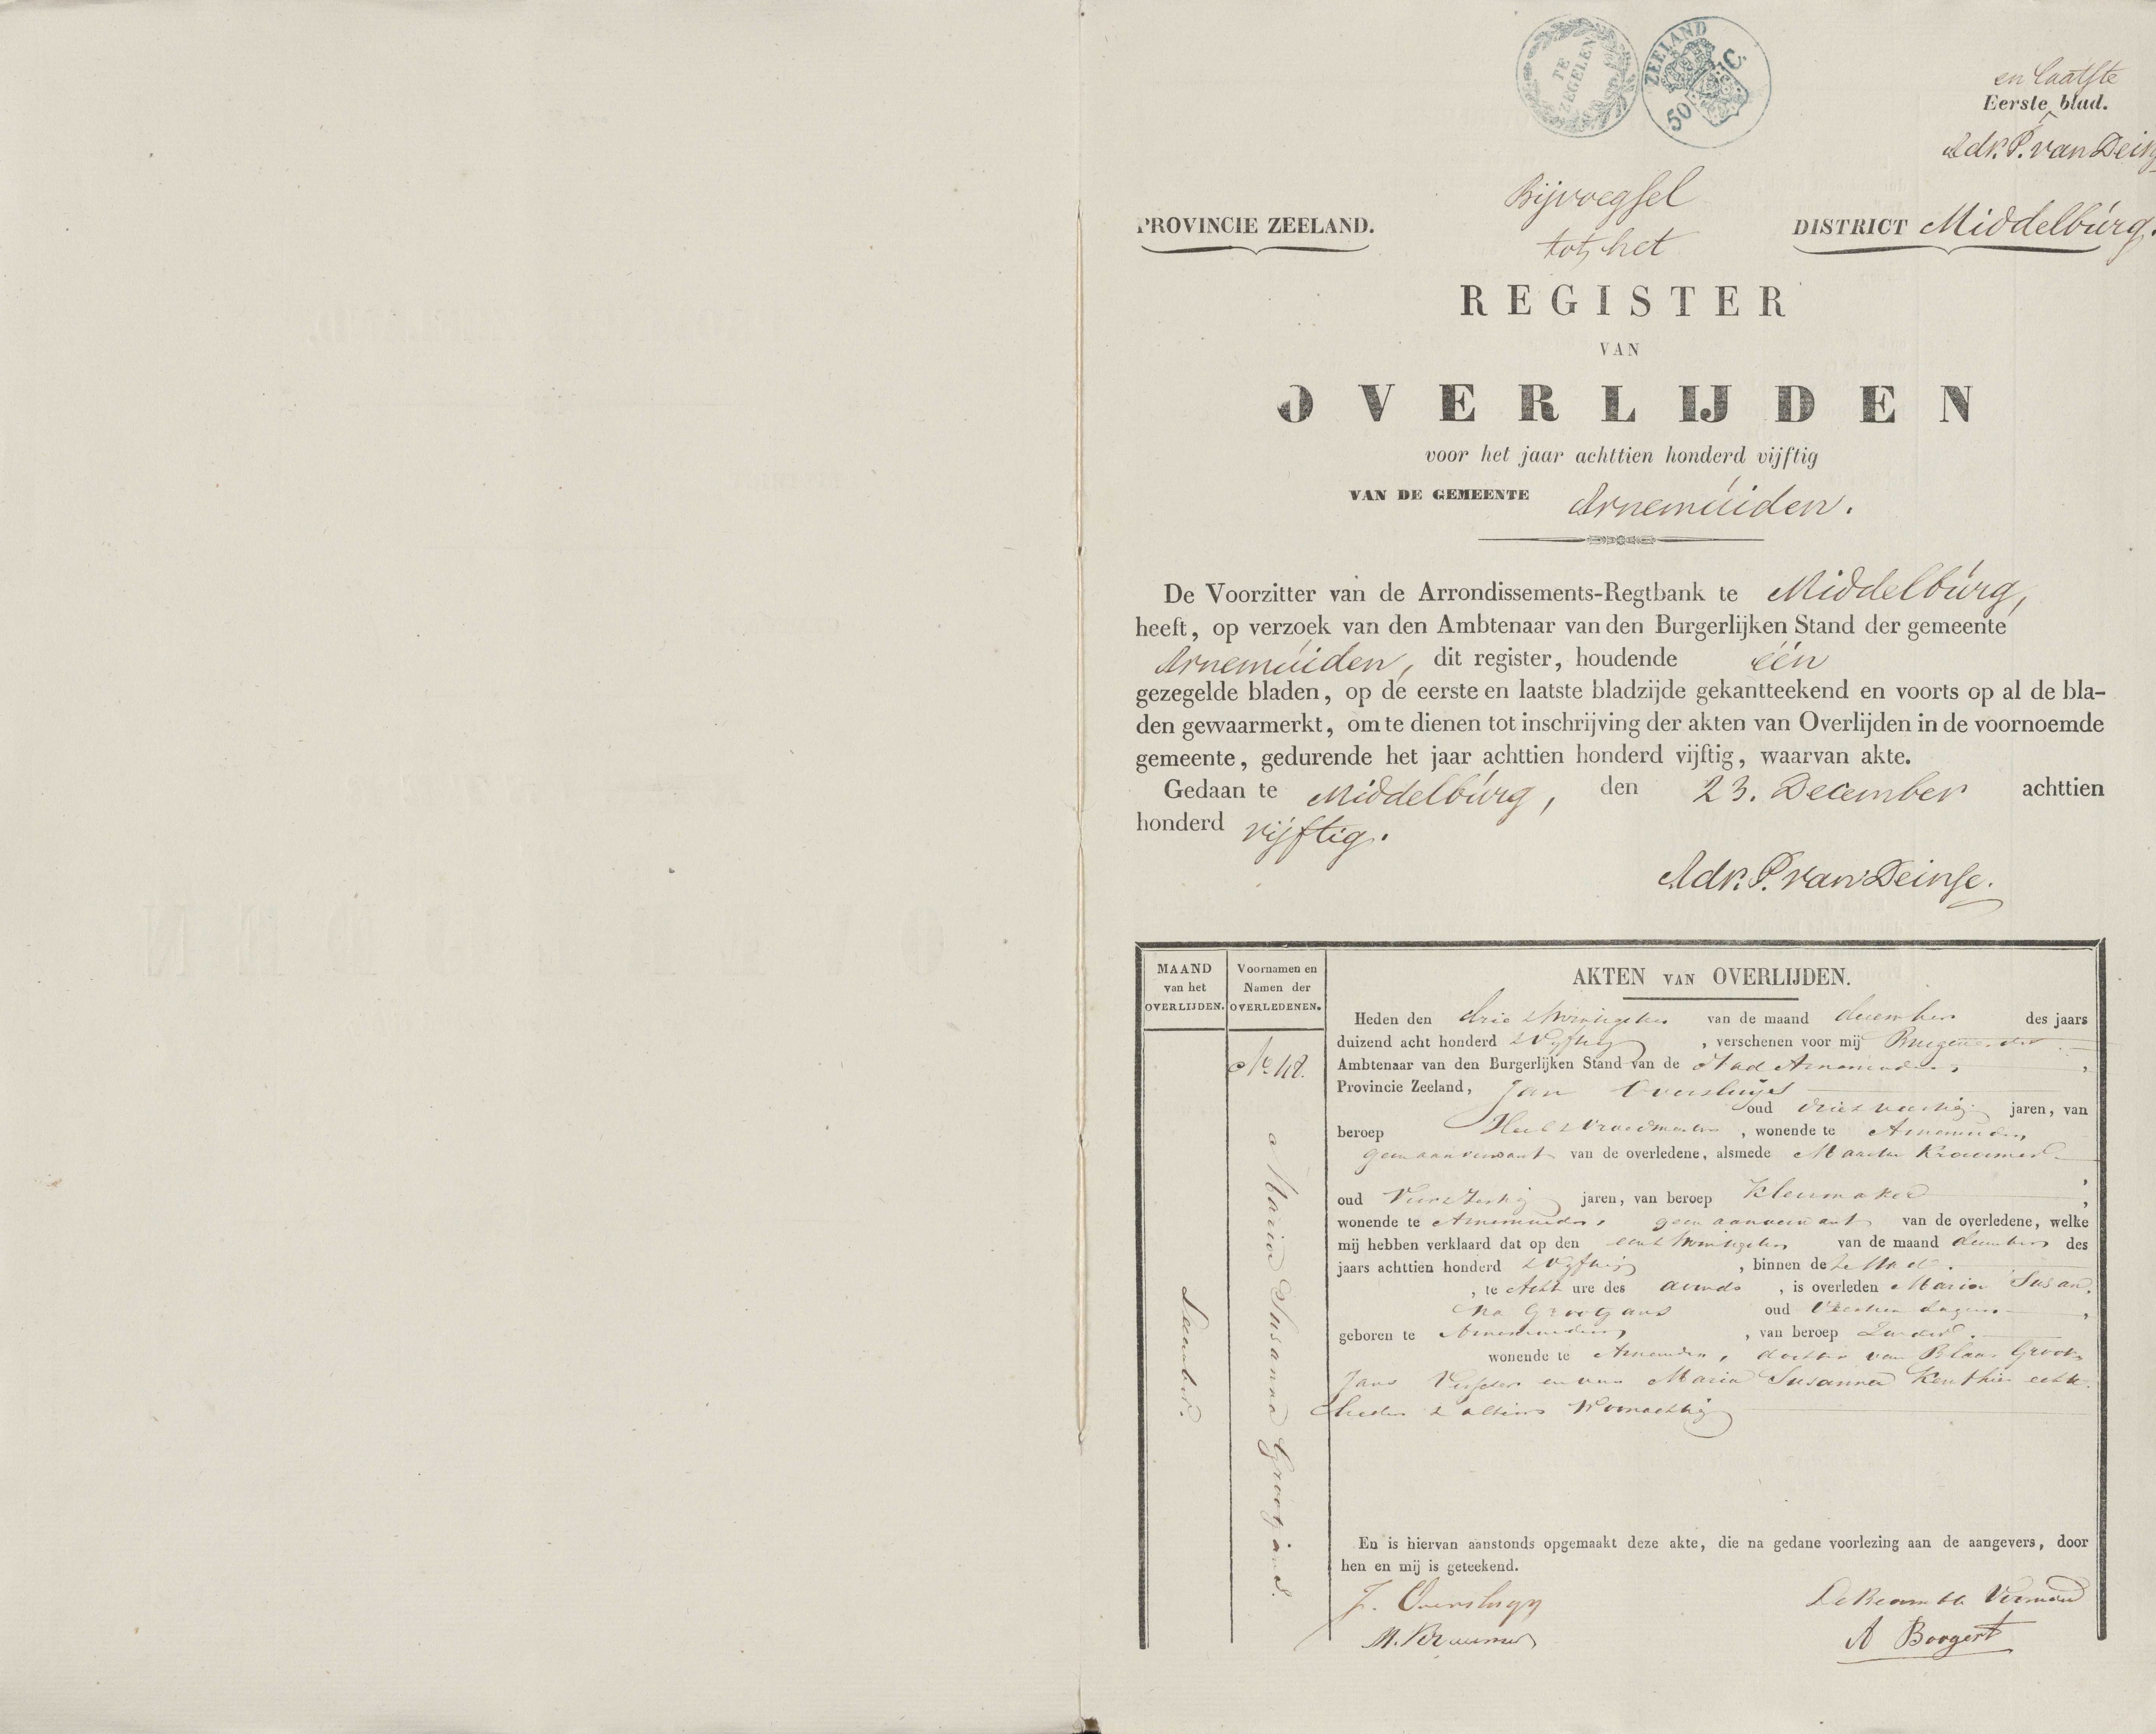 TE
ZEGELEN
ZEELAND
50 C.
en laatste
Eerste blad.
Adr. P. van Deins
Bijvoegsel
PROVINCIE ZEELAND.
tot het
DISTRICT Middelburg.
REGISTER
VAN
OVERLIJDEN
voor het jaar achttien honderd vijftig
VAN DE GEMEENTE Arnemuiden.
De Voorzitter van de Arrondissements-Regtbank te Middelburg,
heeft, op verzoek van den Ambtenaar van den Burgerlijken Stand der gemeente
Arnemuiden, dit register, houdende één
gezegelde bladen, op de eerste en laatste bladzijde gekantteekend en voorts op al de bla-
den gewaarmerkt, om te dienen tot inschrijving der akten van Overlijden in de voornoemde
gemeente, gedurende het jaar achttien honderd vijftig, waarvan akte.
Gedaan te Middelburg, den 23. December achttien
honderd vijftig.
Adr. P. van Deinse.
MAAND
van het
OVERLIJDEN.
Voornamen en
Namen der
OVERLEDENEN.
AKTEN VAN OVERLIJDEN.
December.
No. 48.
Maria Susanna Grootjans.
Heden den drie & twintigsten van de maand december des jaars
duizend acht honderd & Vyftig, verschenen voor mij Burgemeester
Ambtenaar van den Burgerlijken Stand van de Stad Arnemuiden,
Provincie Zeeland, Jan Oversluijs
oud drie & veertig jaren, van
beroep Heel & Vroedmeester, wonende te Arnemuiden
geen aanverwant van de overledene, alsmede Maarten Kraamer
oud Vier & jaren, van beroep Kleermaker,
wonende te Arnemuiden, geen aanverwant van de overledene, welke
mij hebben verklaard dat op den een & twintigsten van de maand december des
jaars achttien honderd & Vyftig, binnen deze Stad
, te Acht ure des avonds, is overleden Maria Susan
na Grootjans oud Veertien dagen,
geboren te Arnemuiden, van beroep Zonder.
wonende te Arnemuiden, dochter van Blaas Groot
Jans Visscher en van Maria Susanna Keuthier echte
lieden & alhier Woonachtig
En is hiervan aanstonds opgemaakt deze akte, die na gedane voorlezing aan de aangevers, door
hen en mij is geteekend.
J. Oversluys
De Beambte Voormeld
M. Kraamer
A Boogert